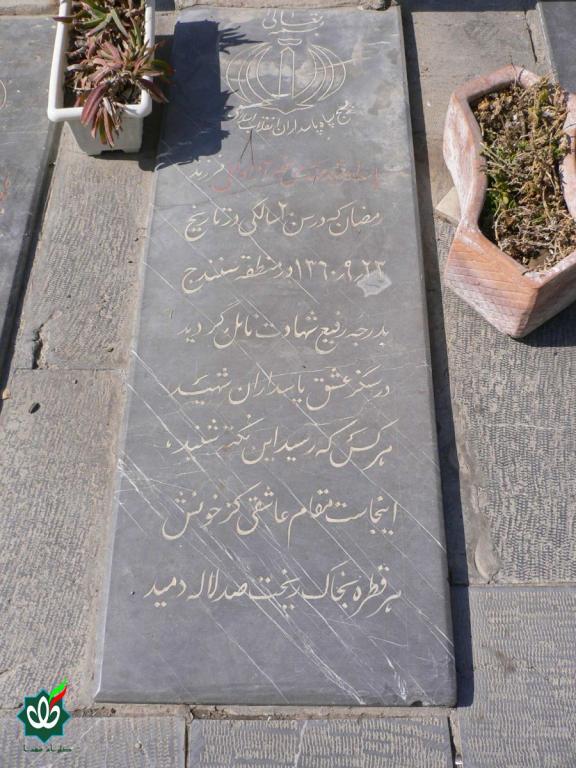 بسمه تعالی
سپاه پاسداران انقلاب اسلامی
پاسدار شهید فرزند
رمضان که در سن سالگی در تاریخ
۱۳۶۰/۹/۲۳ در منطقه سنندج
بدرجه رفیع شهادت نائل گردید
در سنگر عشق پاسداران شهید
هر کس که رسید این نکته شنید
اینجاست مقام عاشقی کز خونش
هر قطره بخاک ریخت صد لاله دمید
گلزار شهدا